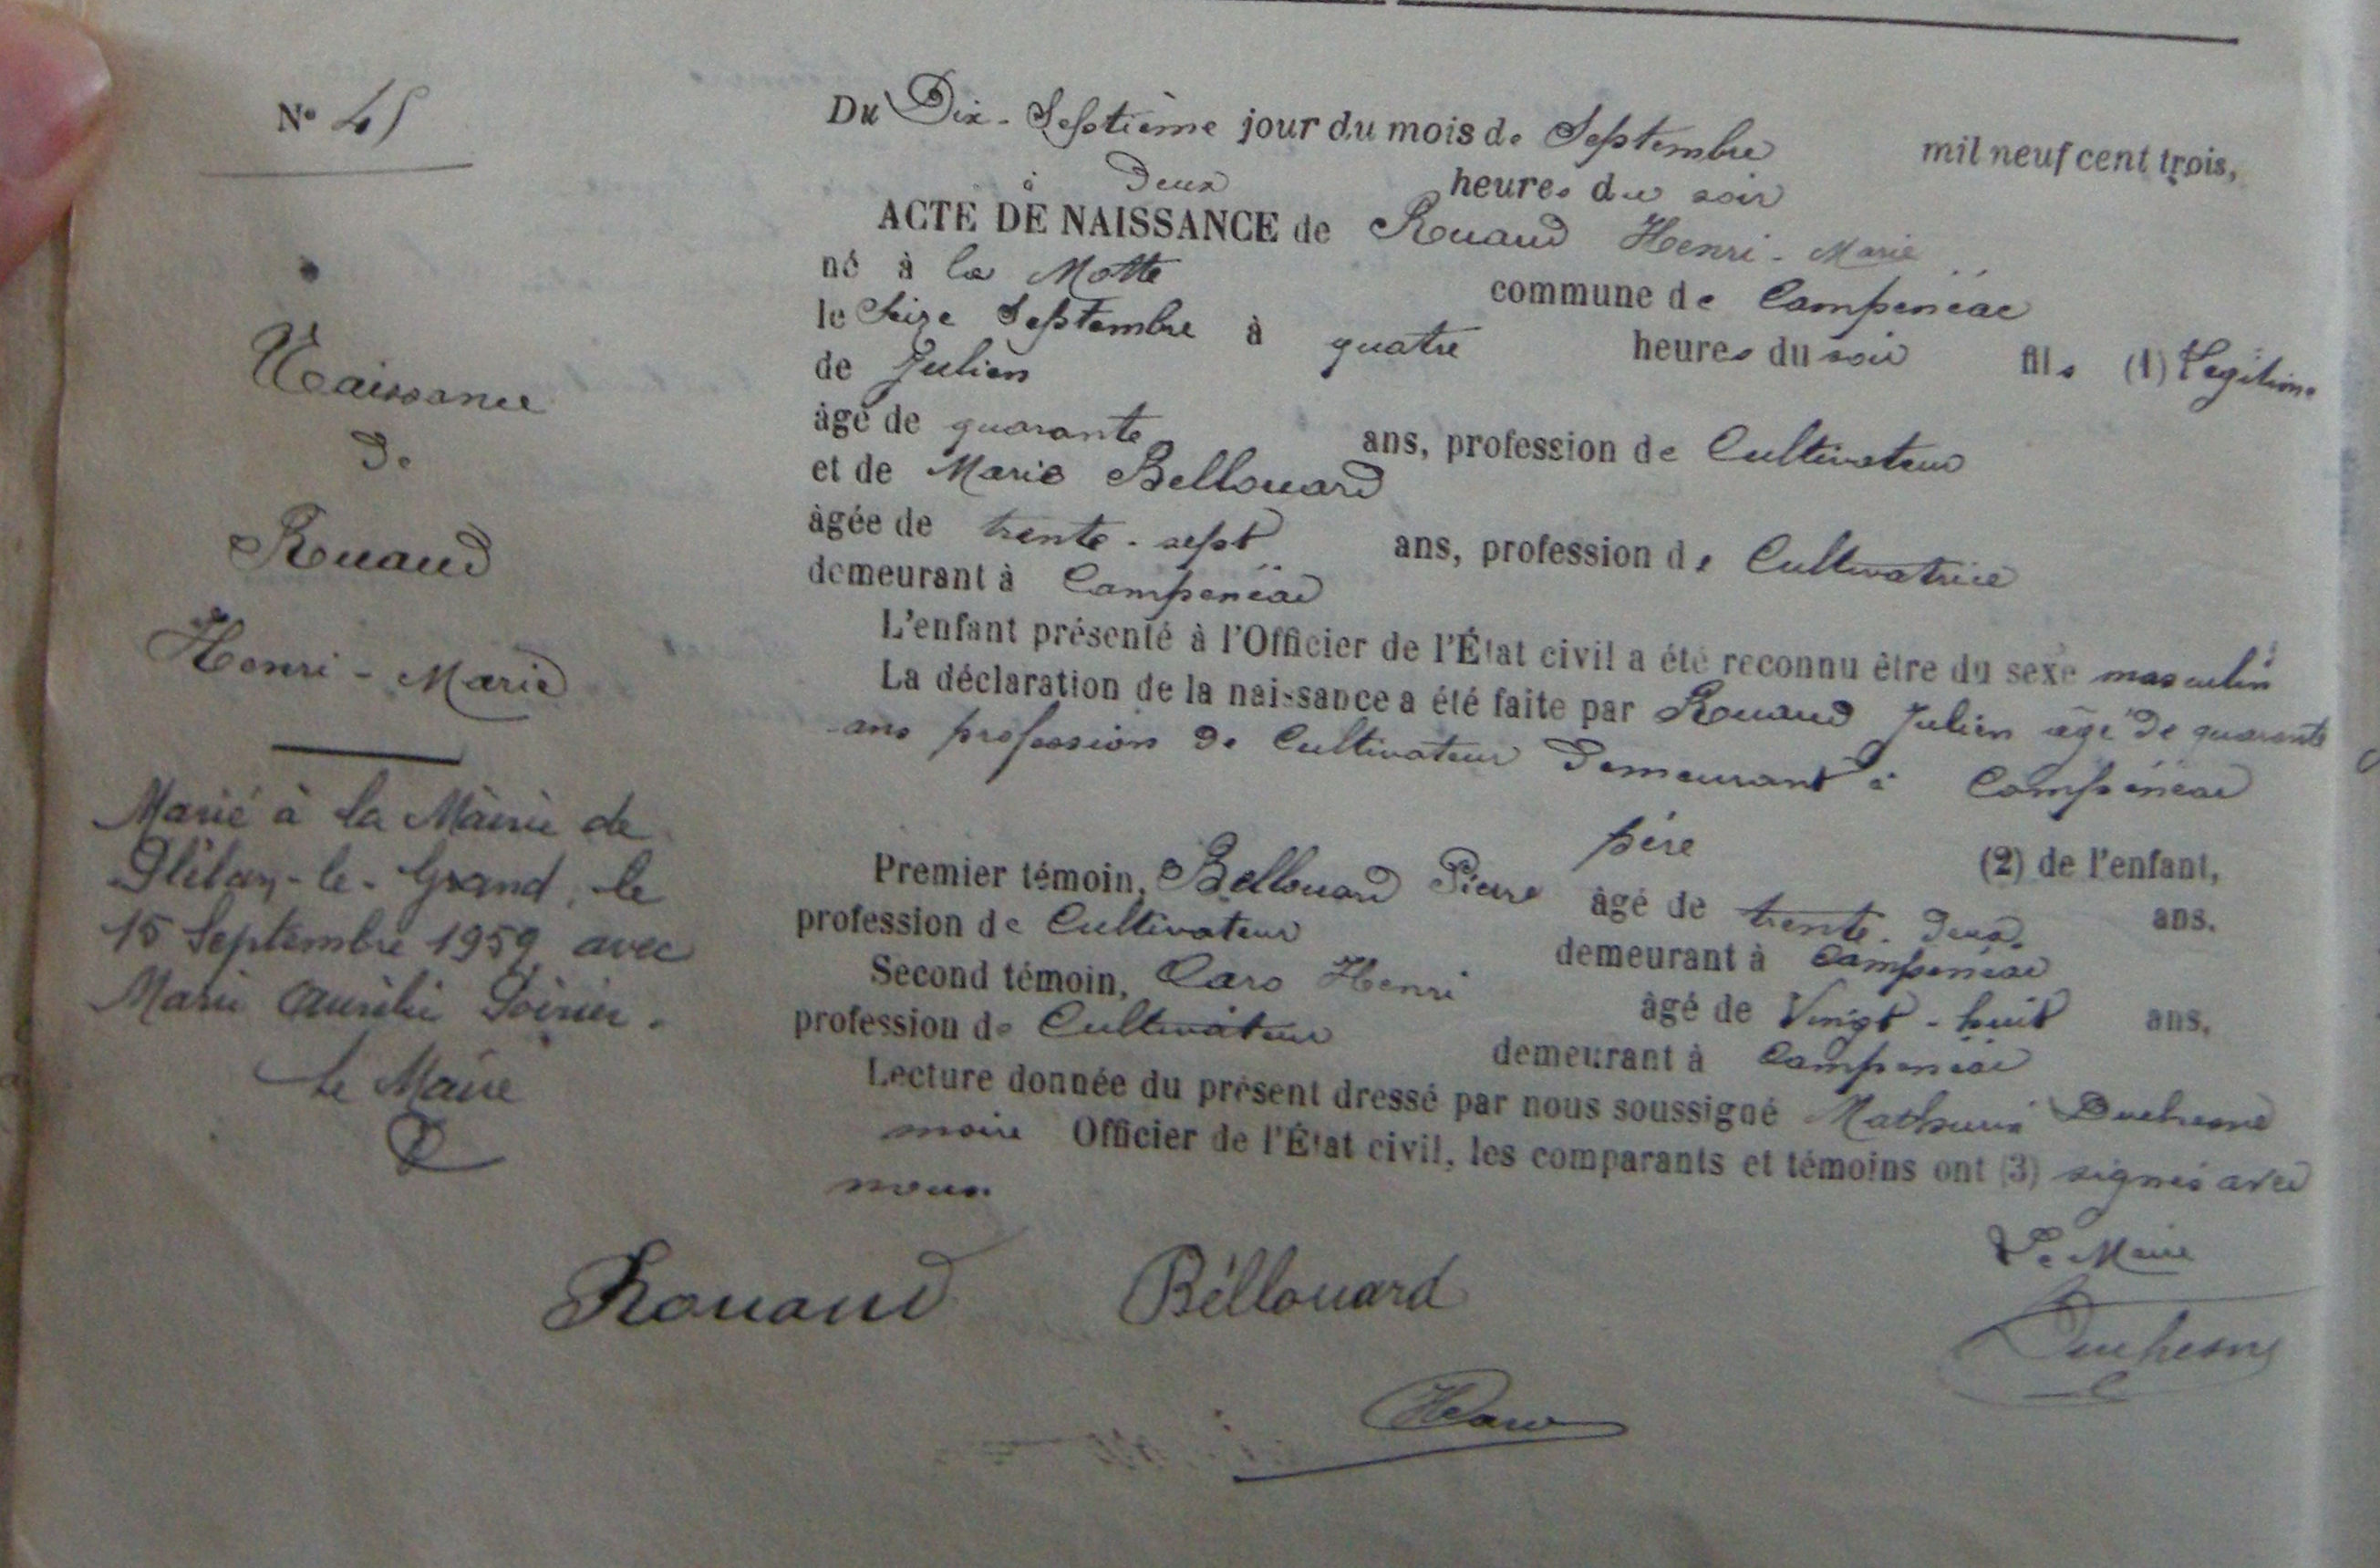 N° 45
Naissance
de
Rouaud
Henri - Marie
Marié à la Mairie de
Plélan-le-Grand, le
15 Septembre 1959 avec
Marie Aurélie Poirier.
Le Maire
Du Dix-Septième jour du mois de Septembre mil neuf cent trois,
à Deux heures du soir
ACTE DE NAISSANCE de Rouaud Henri - Marie
né à la Motte commune de Campénéac
le Seize Septembre à quatre heures du soir fils (1) Légitime
de Julien
âgé de quarante ans, profession de Cultivateur
et de Marie Bellouard
âgée de trente-sept ans, profession de Cultivatrice
demeurant à Campénéac
L'enfant présenté à l'Officier de l'État civil a été reconnu être du sexe masculin
La déclaration de la naissance a été faite par Rouaud Julien âgé de quarante
ans profession de Cultivateur demeurant à Campénéac
père (2) de l'enfant,
Premier témoin, Bellouard Pierre âgé de trente-deux ans.
profession de Cultivateur demeurant à Campénéac
Second témoin, Caro Henri âgé de Vingt-huit ans,
profession de Cultivateur demeurant à Campénéac
Lecture donnée du présent dressé par nous soussigné Mathurin Duchesne
maire Officier de l'État civil, les comparants et témoins ont (3) signés avec
nous.
Le Maire
Rouaud Béllouard
Duchesne
HCaro